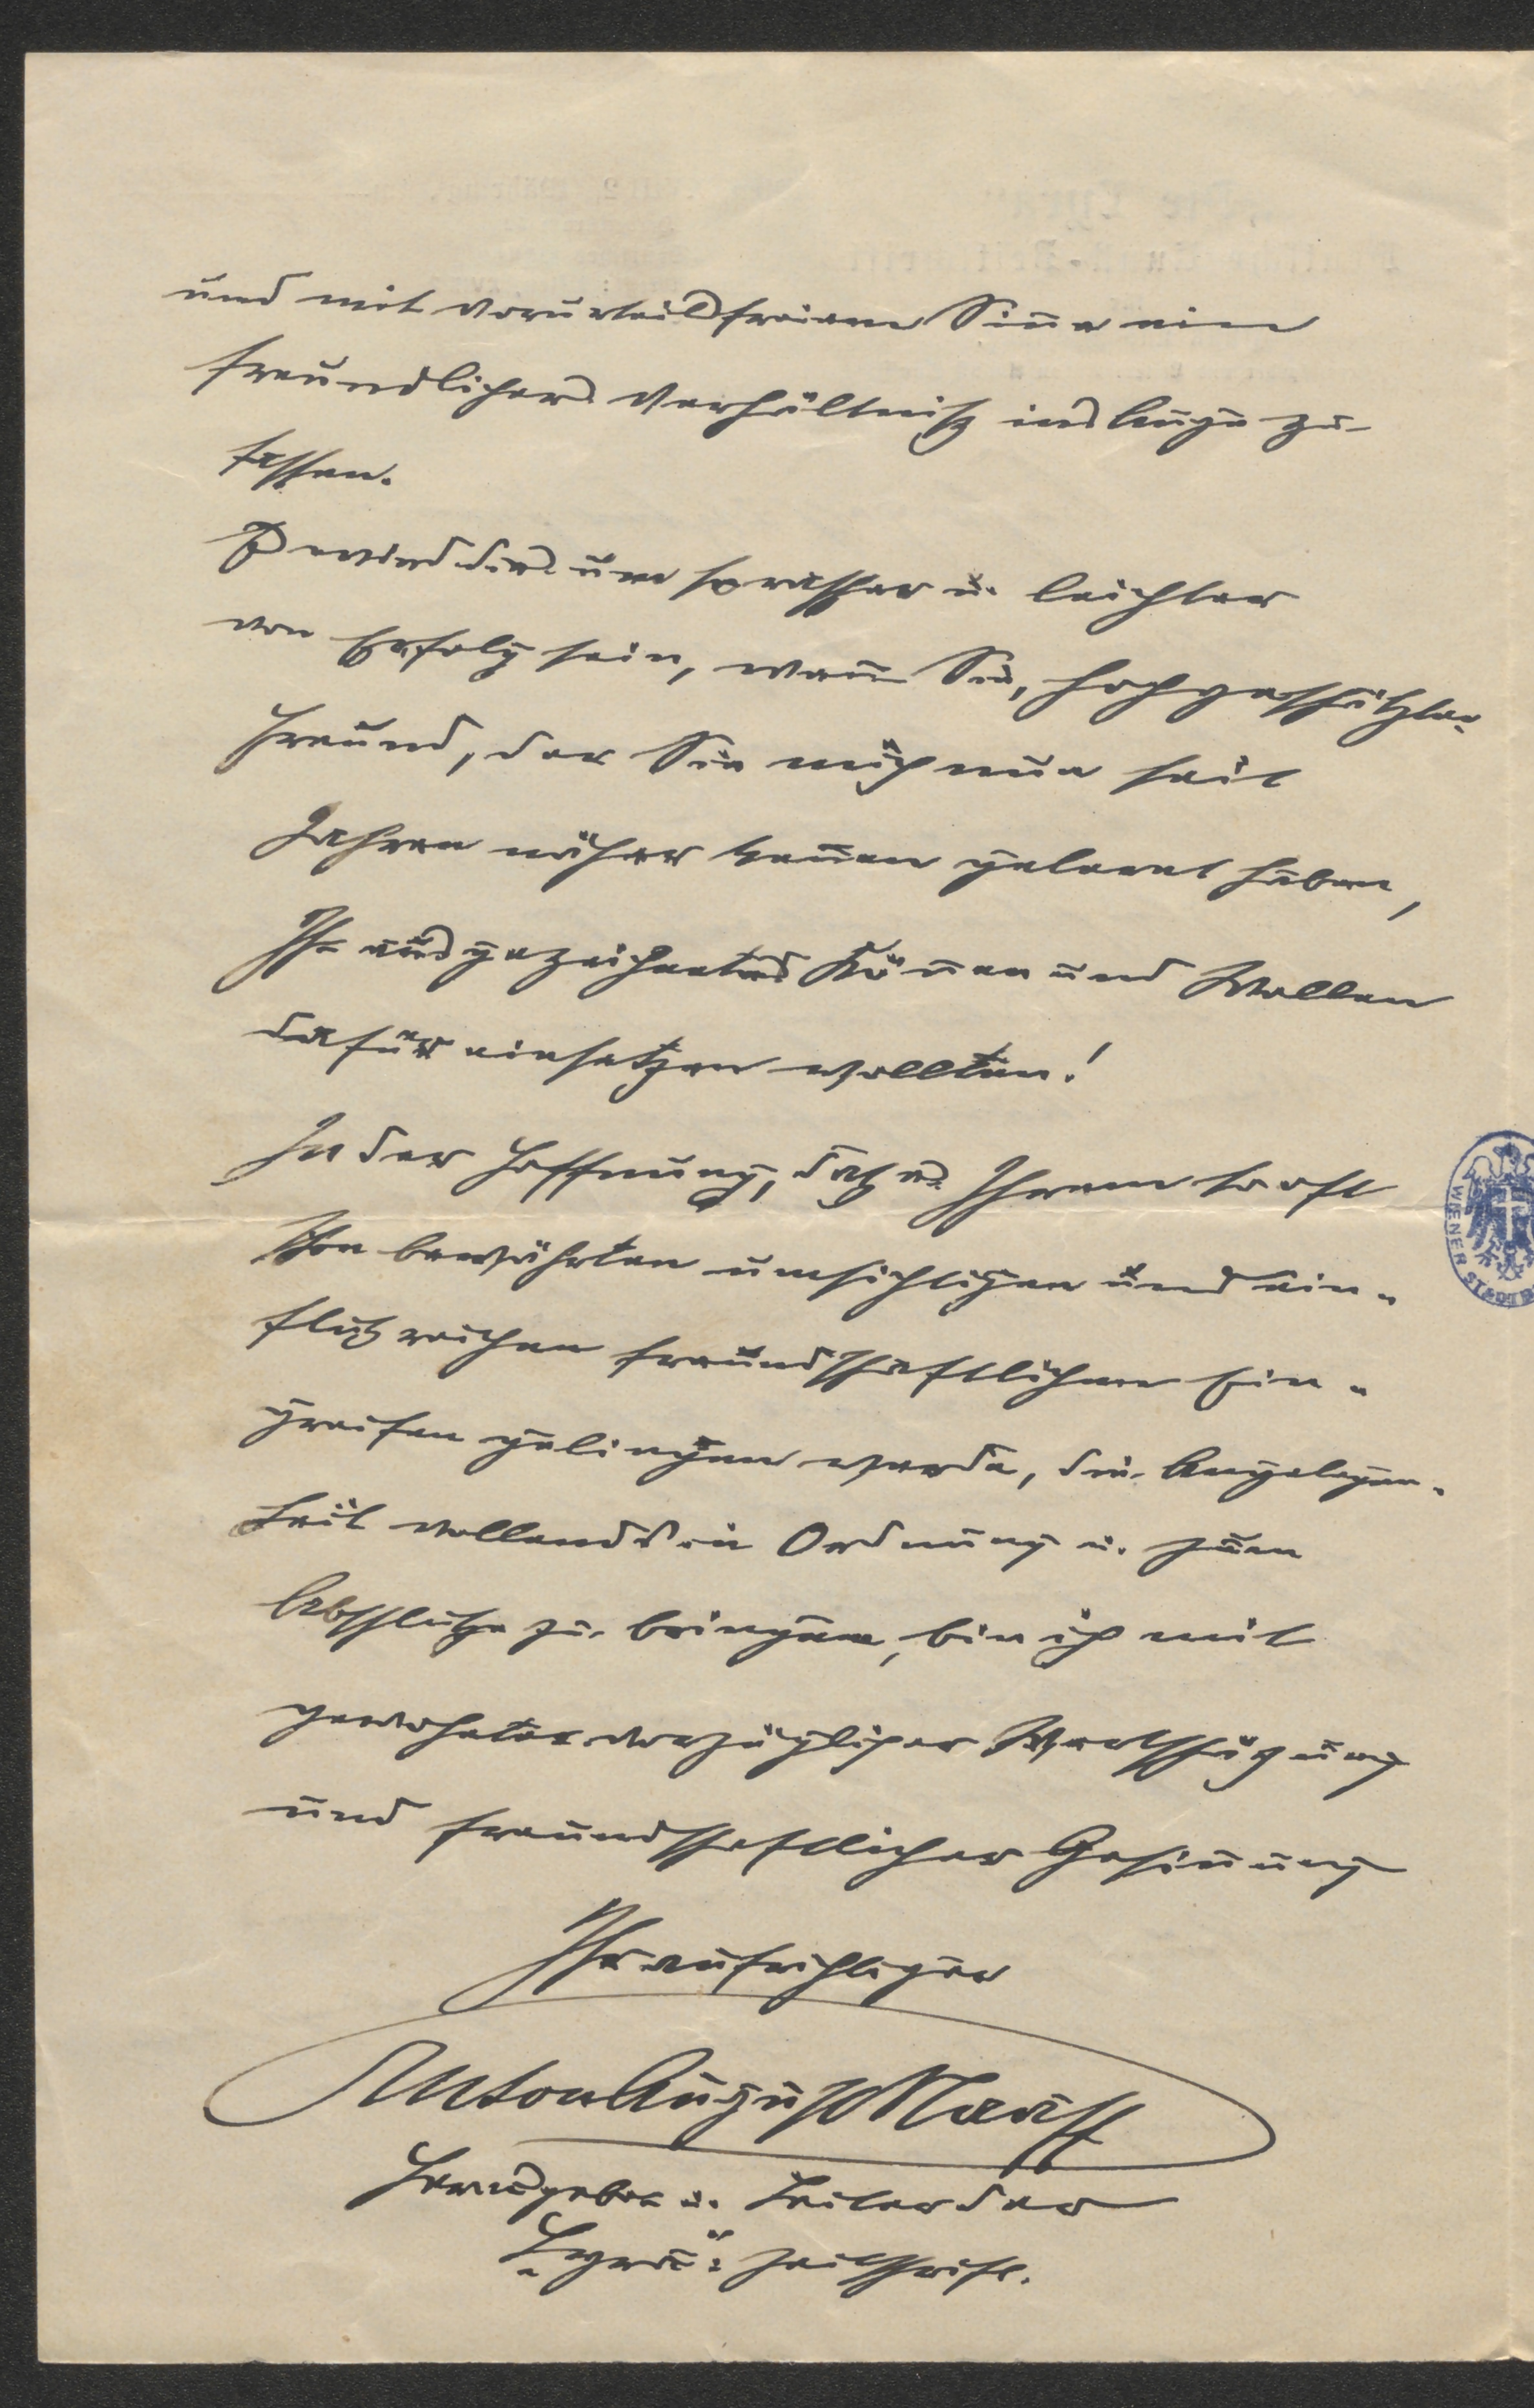 und mit vorurteilsfreiem Sinne ein
freundliches Verhältniß ins Auge zu
fassen.
Es wird dies um so rascher u. leichter
von Erfolg sein, wenn Sie, hochgeschätzter
Freund, der Sie mich nun seit
Jahren näher kennen gelernt haben,
Ihr ausgezeichnetes Können und Wollen
dafür einsetzen wollten!
In der Hoffnung, daß es Ihrem so oft
schon bewährten umsichtigen und ein-
flußreichen freundschaftlichen Ein-
greifen gelingen werde, die Angelegen-
heit vollends in Ordnung u. zum
Abschluße zu bringen, bin ich mit
gewohnter vorzüglicher Wertschätzung
und freundschaftlicher Gesinnung
Ihr aufrichtiger
Anton August Naaff
Herausgeber u. Leiter der
„Lyra"-Zeitschrift.
WIENER STADTB